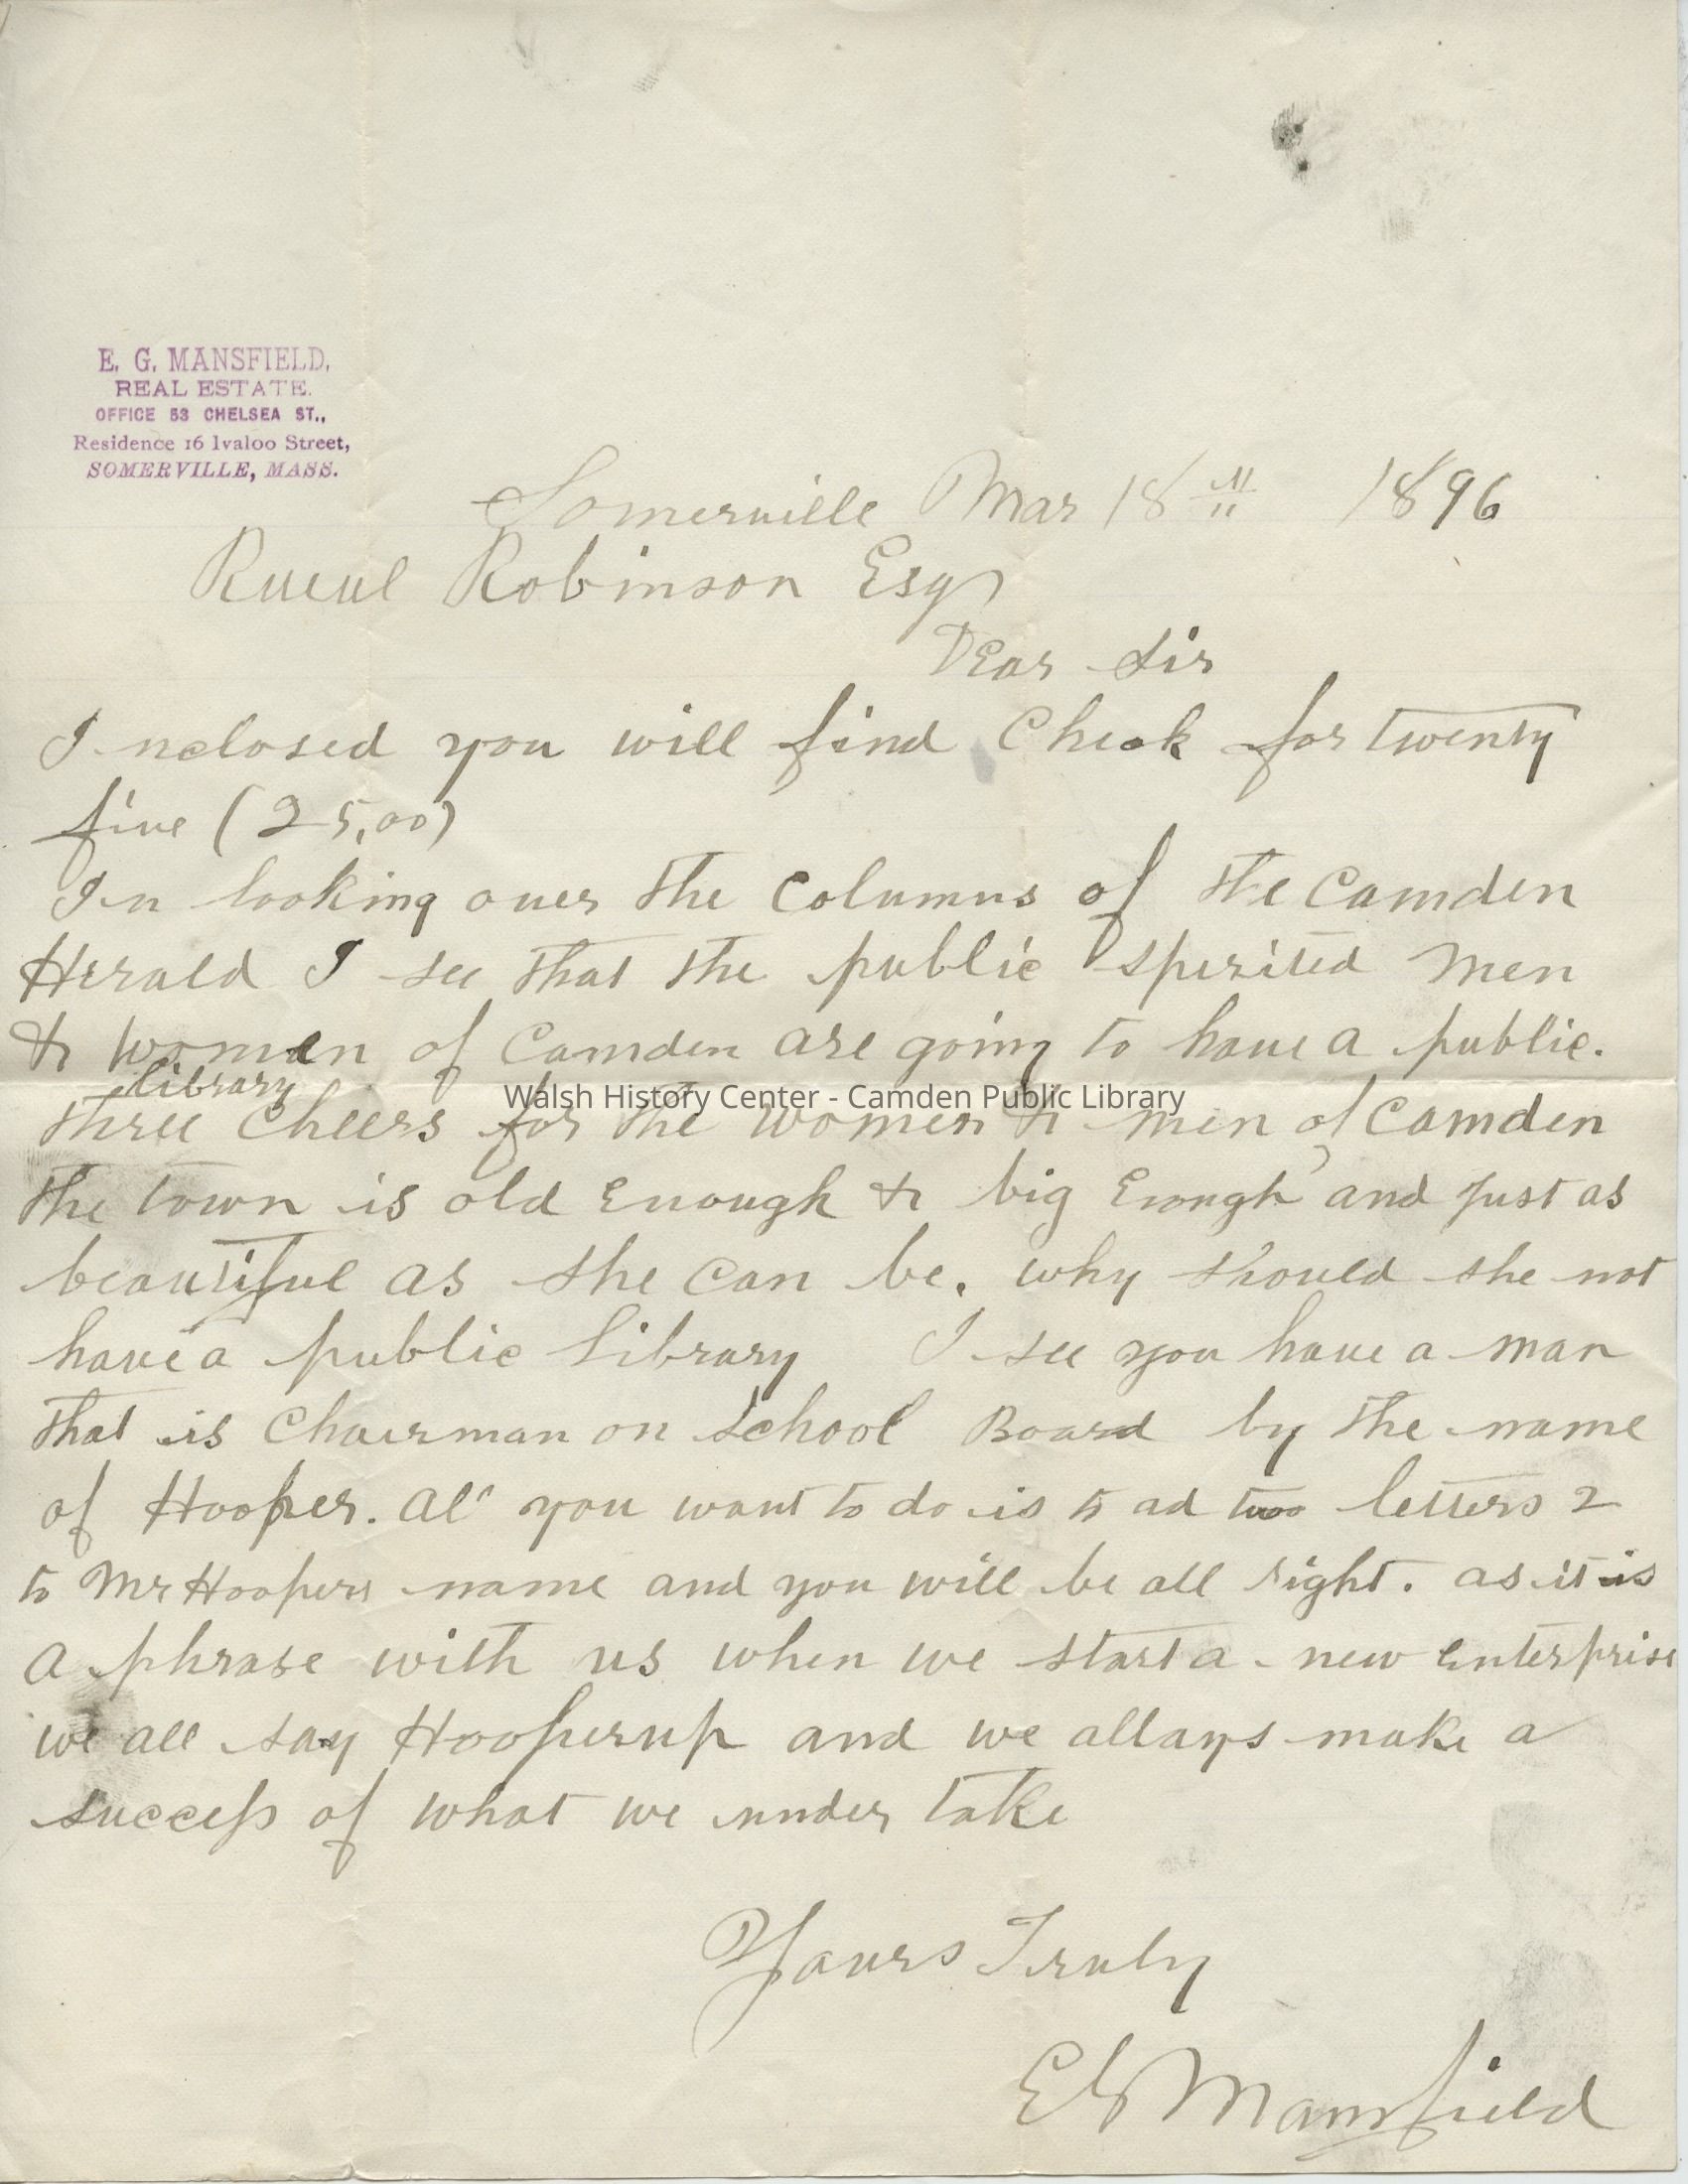 E. G. MANSFIELD,
REAL ESTATE.
OFFICE 53 CHELSEA ST.,
Residence 16 Ivaloo Street,
SOMERVILLE, MASS.
Somerville Mar 18th 1896
Rueul Robinson Esq
Dear Sir
Inclosed you will find Check for twenty
five (25,00)
In looking over the Columns of the Camden
Herald I see that the public sperited men
& women of Camden are going to have a public.
library
three Cheers for the women & men of Camden
Walsh History Center - Camden Public Library
the town is old Enough & big Enough and Just as
beautiful as she can be. why should she not
have a public library I see you have a man
that is Chairman on School Board by the name
of Hooper. al' you want to do is to ad two letters 2
to Mr Hoopers name and you will be all right. as it is
a phrase with us when we start a new Enterprise
we all say Hooperup and we allays make a
success of what we under take
Yours Truly
E G Mansfield